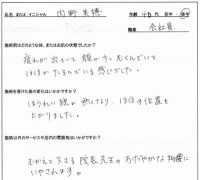 氏名 または イニシャル 内野 美穂 年齢 40代 前半・後半
職業 会社員
施術前はどのような体、またはお肌の状態でしたか?
疲れが出ていて 顔が少しむくんでいて
ほほがたるんでいる感じでした。
施術を受けた後の変化はいかがですか?
ほうれい線が無くなり、ほほの位置も
上がりました。
施術以外のサービスや店内の雰囲気はいかがですか?
むかえて下さる 院長先生の あたたかな 笑顔に
いやされます。